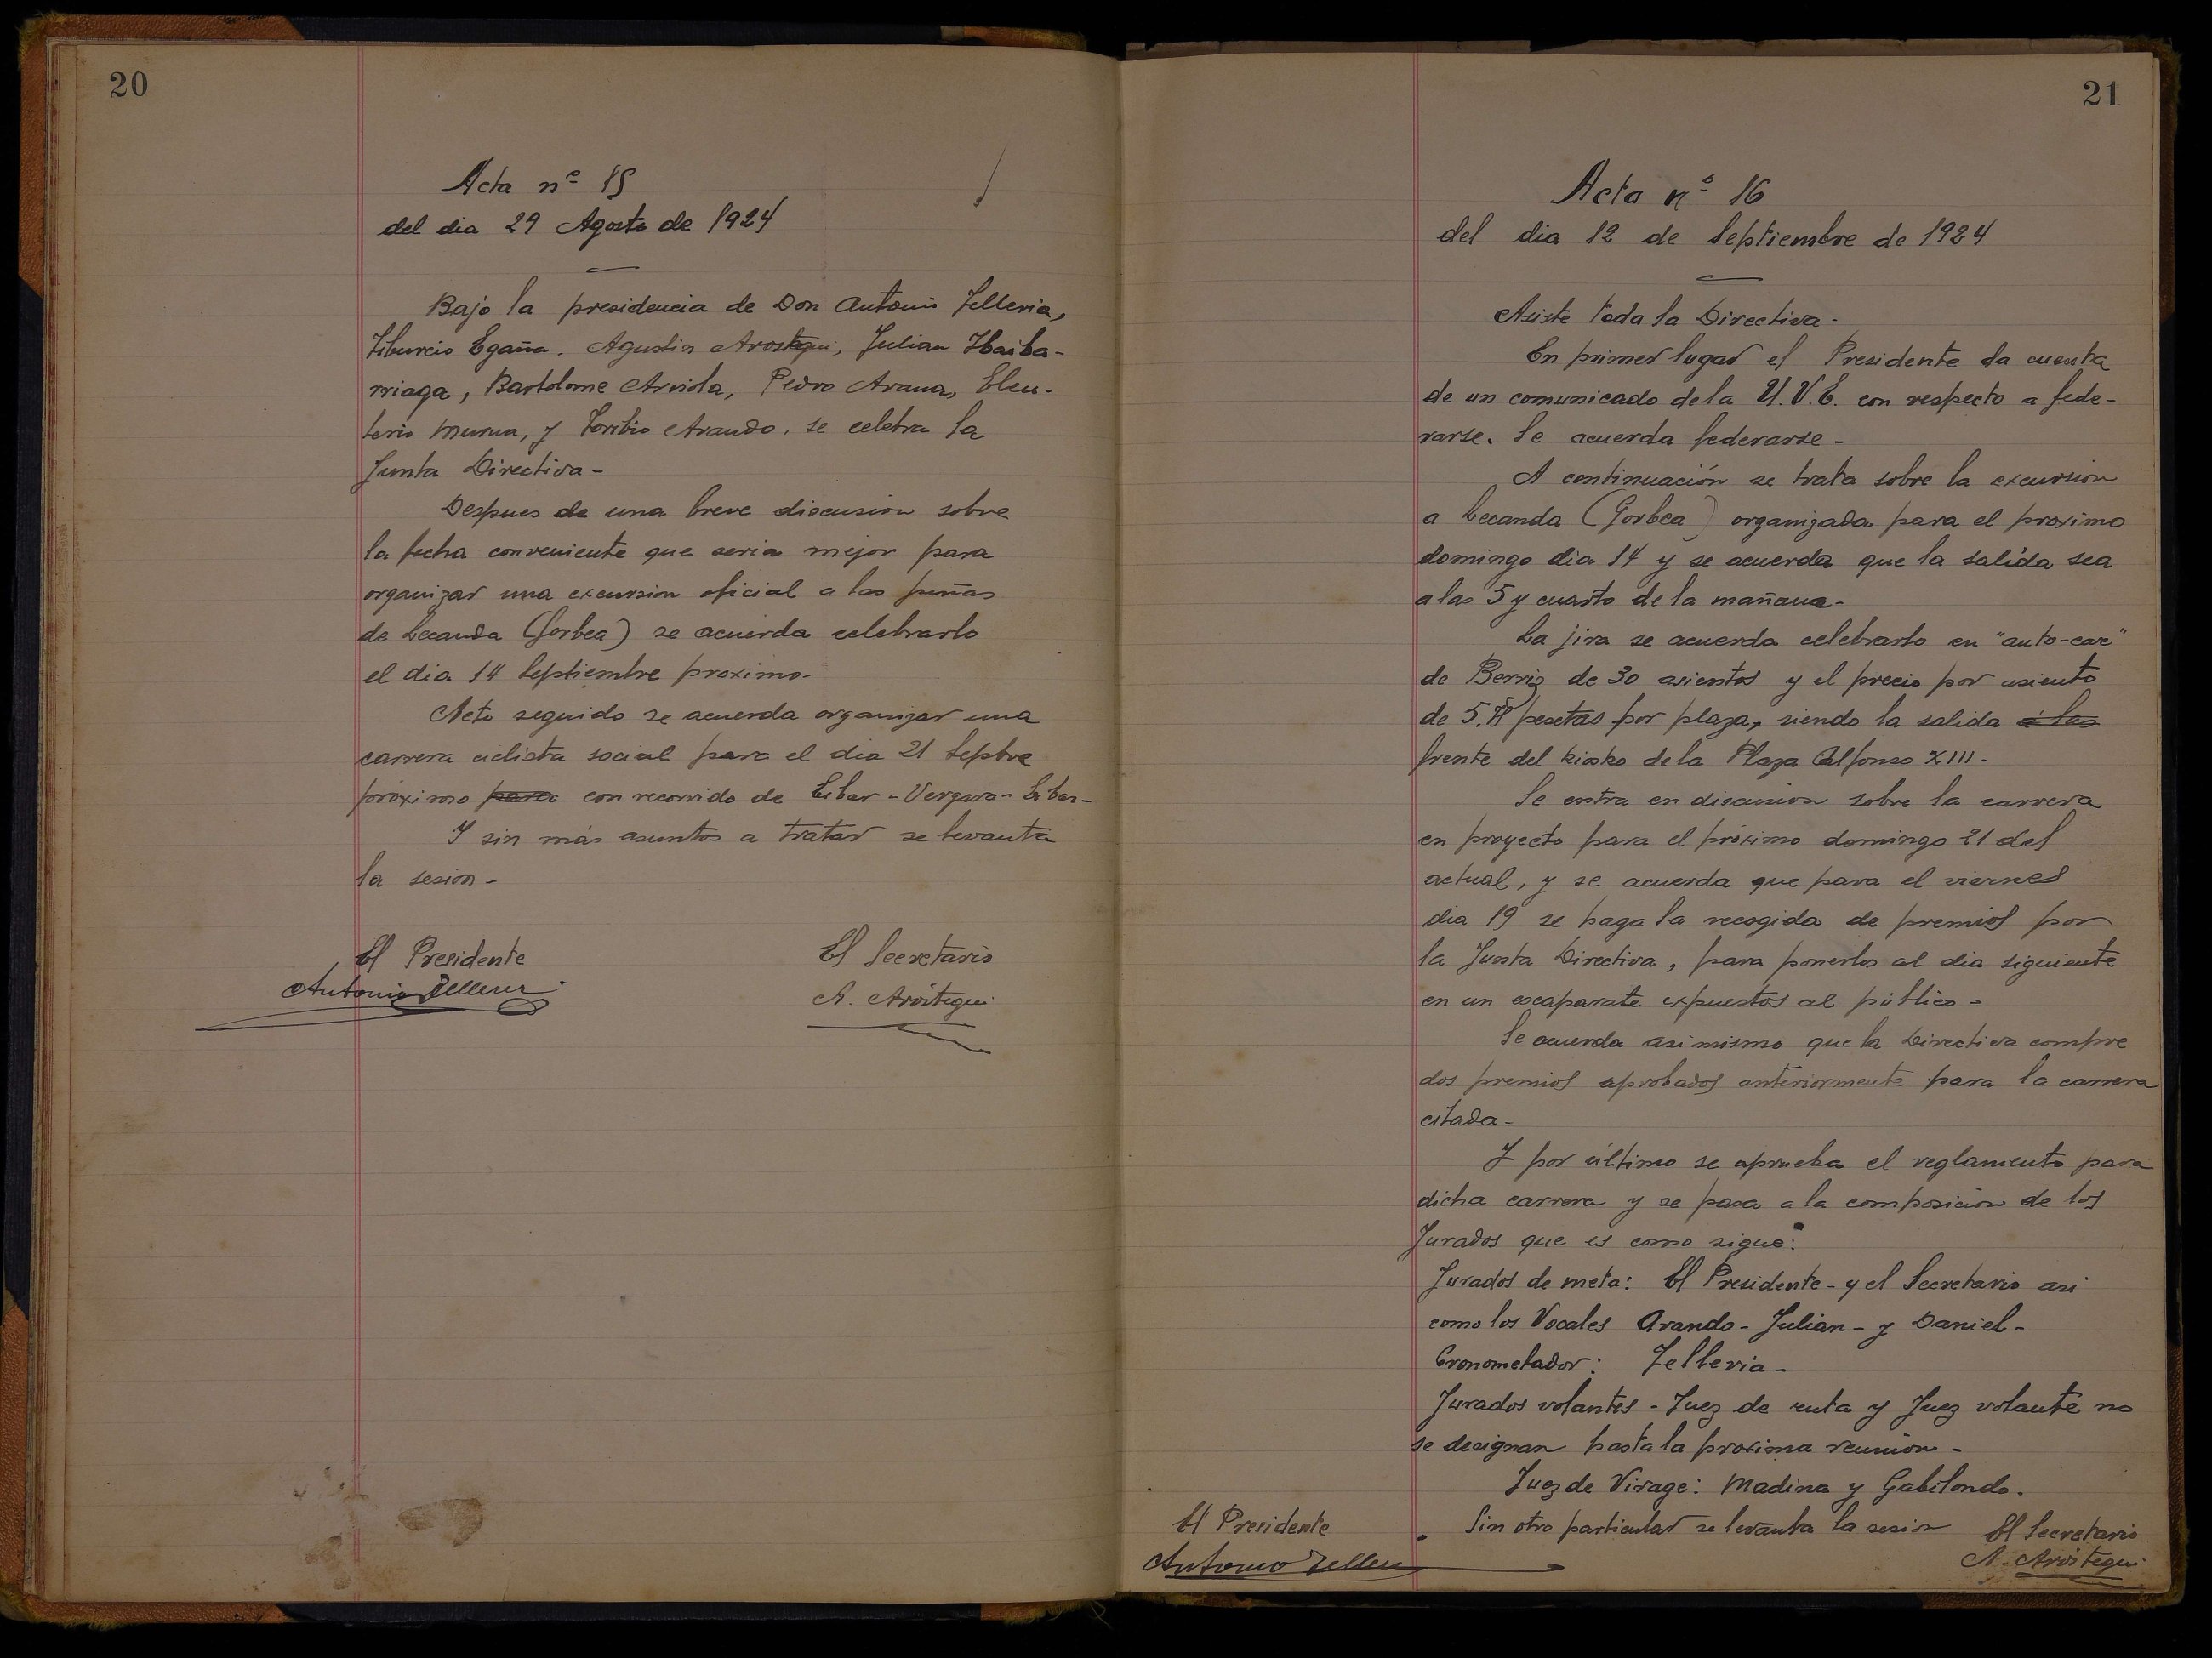 20
Acta nº 15
del dia 29 Agosto de 1924
Bajo la presidencia de Don Antonio Telleria,
Tiburcio Egaña. Agustin Arostegui, Julian Ibaiba-
rriaga, Bartolome Arriola, Pedro Arana, Eleu-
terio Murua, y Toribio Arando. se celebra la
Junta Directiva-
Despues de una breve discusion sobre
la fecha conveniente que seria mejor para
organizar una excursion oficial a las peñas
de Lecanda (Gorbea) se acuerda celebrarlo
el dia 14 Septiembre proximo-
Acto seguido se acuerda organizar una
carrera ciclista social para el dia 21 Sepbre
próximo para con recorrido de Eibar-Vergara-Eibar-
Y sin más asuntos a tratar se levanta
la sesion-
El Presidente
Antonio Telleria
El Secretario
A. Aróstegui
21
Acta nº 16
del dia 12 de Septiembre de 1924
Asiste toda la Directiva-
En primer lugar el Presidente da cuenta
de un comunicado de la U.V.E. con respecto a fede-
rarse. Se acuerda federarse-
A continuación se trata sobre la excursion
a Lecanda (Gorbea) organizada para el proximo
domingo dia 14 y se acuerda que la salida sea
a las 5 y cuarto de la mañana-
La jira se acuerda celebrarlo en "auto-car"
de Berriz de 30 asientos y el precio por asiento
de 5. pesetas por plaza, siendo la salida a las
frente del kiosko de la Plaza Alfonso XIII-
Se entra en discusion sobre la carrera
en proyecto para el próximo domingo 21 del
actual, y se acuerda que para el viernes
dia 19 se haga la recogida de premios por
la Junta Directiva, para ponerlos al dia siguiente
en un escaparate expuestos al público-
Se acuerda asimismo que la Directiva compre
dos premios aprobados anteriormente para la carrera
citada-
Y por último se aprueba el reglamento para
dicha carrera y se pasa a la composición de los
Jurados que es como sigue:
Jurados de meta: El Presidente-y el Secretario asi
como los Vocales Arando-Julian-y Daniel-
Cronometador: Telleria-
Jurados volantes-Juez de ruta y Juez volante no
se designan hasta la proxima reunión-
Juez de Virage: Madina y Gabilondo.
Sin otro particular se levanta la sesion
El Presidente
Antonio Telleria
El Secretario
A. Aróstegui